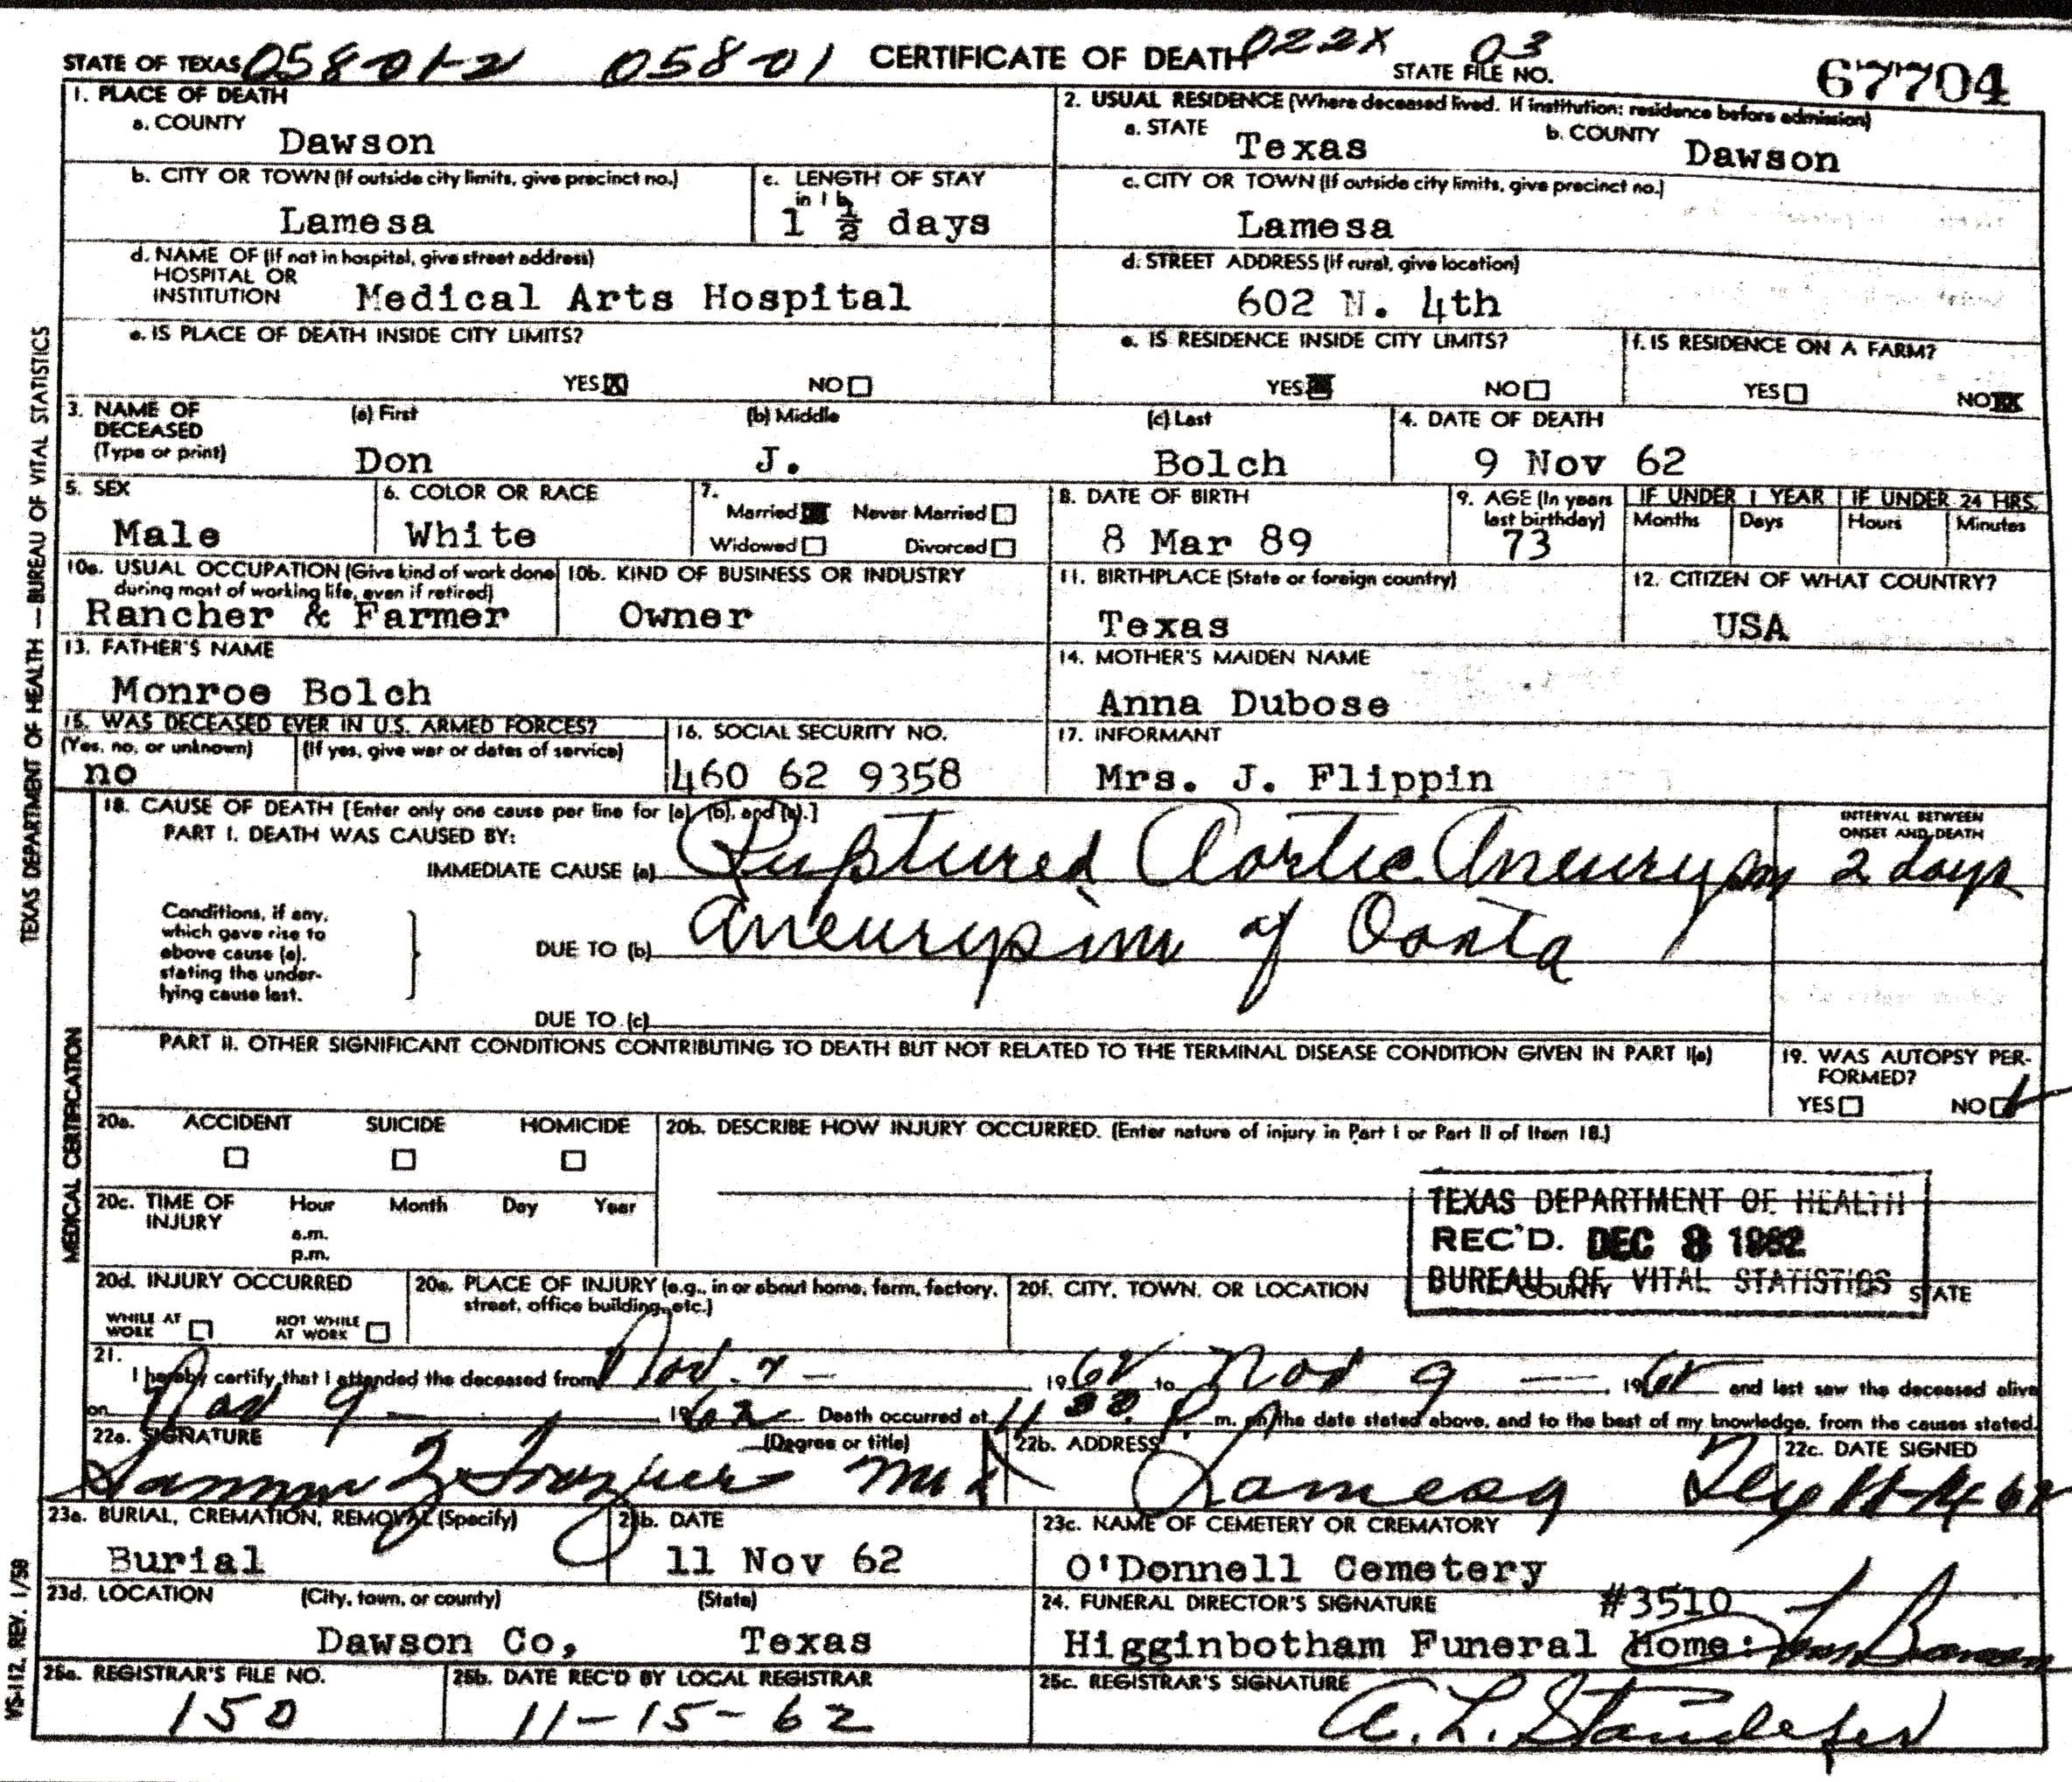 STATE OF TEXAS 05801-2 05801 CERTIFICATE OF DEATH 022X 03 STATE FILE NO. 67704
1. PLACE OF DEATH
a. COUNTY
Dawson
2. USUAL RESIDENCE (Where deceased lived. If institution: residence before admission)
a. STATE Texas b. COUNTY Dawson
b. CITY OR TOWN (If outside city limits, give precinct no.)
Lamesa
c. LENGTH OF STAY in 1 b
1 ½ days
c. CITY OR TOWN (If outside city limits, give precinct no.)
Lamesa
d. NAME OF (If not in hospital, give street address)
HOSPITAL OR
INSTITUTION Medical Arts Hospital
d. STREET ADDRESS (If rural, give location)
602 N. 4th
e. IS PLACE OF DEATH INSIDE CITY LIMITS?
YES X NO
e. IS RESIDENCE INSIDE CITY LIMITS?
YES NO
f. IS RESIDENCE ON A FARM?
YES NO
3. NAME OF DECEASED (Type or print)
(a) First (b) Middle (c) Last
Don J. Bolch
4. DATE OF DEATH
9 Nov 62
5. SEX
Male
6. COLOR OR RACE
White
7.
Married Never Married
Widowed Divorced
8. DATE OF BIRTH
8 Mar 89
9. AGE (In years last birthday)
73
IF UNDER 1 YEAR IF UNDER 24 HRS.
Months Days Hours Minutes
10a. USUAL OCCUPATION (Give kind of work done during most of working life, even if retired)
Rancher & Farmer
10b. KIND OF BUSINESS OR INDUSTRY
Owner
11. BIRTHPLACE (State or foreign country)
Texas
12. CITIZEN OF WHAT COUNTRY?
USA
13. FATHER'S NAME
Monroe Bolch
14. MOTHER'S MAIDEN NAME
Anna Dubose
15. WAS DECEASED EVER IN U.S. ARMED FORCES?
(Yes, no, or unknown) (If yes, give war or dates of service)
no
16. SOCIAL SECURITY NO.
460 62 9358
17. INFORMANT
Mrs. J. Flippin
18. CAUSE OF DEATH [Enter only one cause per line for (a), (b), and (c).]
PART I. DEATH WAS CAUSED BY:
IMMEDIATE CAUSE (a) Ruptured Aortic Aneurysm
INTERVAL BETWEEN ONSET AND DEATH
2 days
Conditions, if any, which gave rise to above cause (a), stating the underlying cause last.
DUE TO (b) Aneurysim of Oarta
DUE TO (c)
PART II. OTHER SIGNIFICANT CONDITIONS CONTRIBUTING TO DEATH BUT NOT RELATED TO THE TERMINAL DISEASE CONDITION GIVEN IN PART I(a)
19. WAS AUTOPSY PERFORMED?
YES NO
20a. ACCIDENT SUICIDE HOMICIDE
20b. DESCRIBE HOW INJURY OCCURRED. (Enter nature of injury in Part I or Part II of Item 18.)
20c. TIME OF INJURY
Hour Month Day Year
a.m.
p.m.
TEXAS DEPARTMENT OF HEALTH
REC'D. DEC 8 1962
BUREAU OF VITAL STATISTICS
20d. INJURY OCCURRED
WHILE AT WORK NOT WHILE AT WORK
20e. PLACE OF INJURY (e.g., in or about home, farm, factory, street, office building, etc.)
20f. CITY, TOWN, OR LOCATION COUNTY STATE
21.
I hereby certify that I attended the deceased from Nov. 7 — 1962 to Nov 9 — 1962 and last saw the deceased alive
on Nov 9 — 1962 Death occurred at m. on the date stated above, and to the best of my knowledge, from the causes stated.
22a. SIGNATURE (Degree or title)
22b. ADDRESS
Lamesa
22c. DATE SIGNED
23a. BURIAL, CREMATION, REMOVAL (Specify)
Burial
23b. DATE
11 Nov 62
23c. NAME OF CEMETERY OR CREMATORY
O'Donnell Cemetery
23d. LOCATION (City, town, or county) (State)
Dawson Co, Texas
24. FUNERAL DIRECTOR'S SIGNATURE #3510
Higginbotham Funeral Home:
25a. REGISTRAR'S FILE NO.
150
25b. DATE REC'D BY LOCAL REGISTRAR
11-15-62
25c. REGISTRAR'S SIGNATURE
A. L. Standefer
TEXAS DEPARTMENT OF HEALTH — BUREAU OF VITAL STATISTICS
MEDICAL CERTIFICATION
VS-112, REV. 1/58